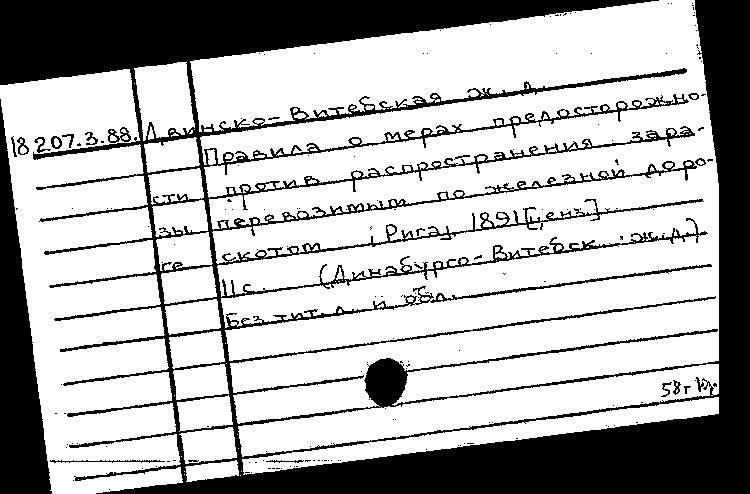 18.207.3.88. Двинско-Витебская ж. д.
Правила о мерах предосторожно-
сти против распространения зара-
зы перевозимым по железной доро-
ге скотом [Рига]. 1891 [ценз.].
11 с. (Динабурго-Витебск. ж. д.)
Без тит. л. и обл.
58г